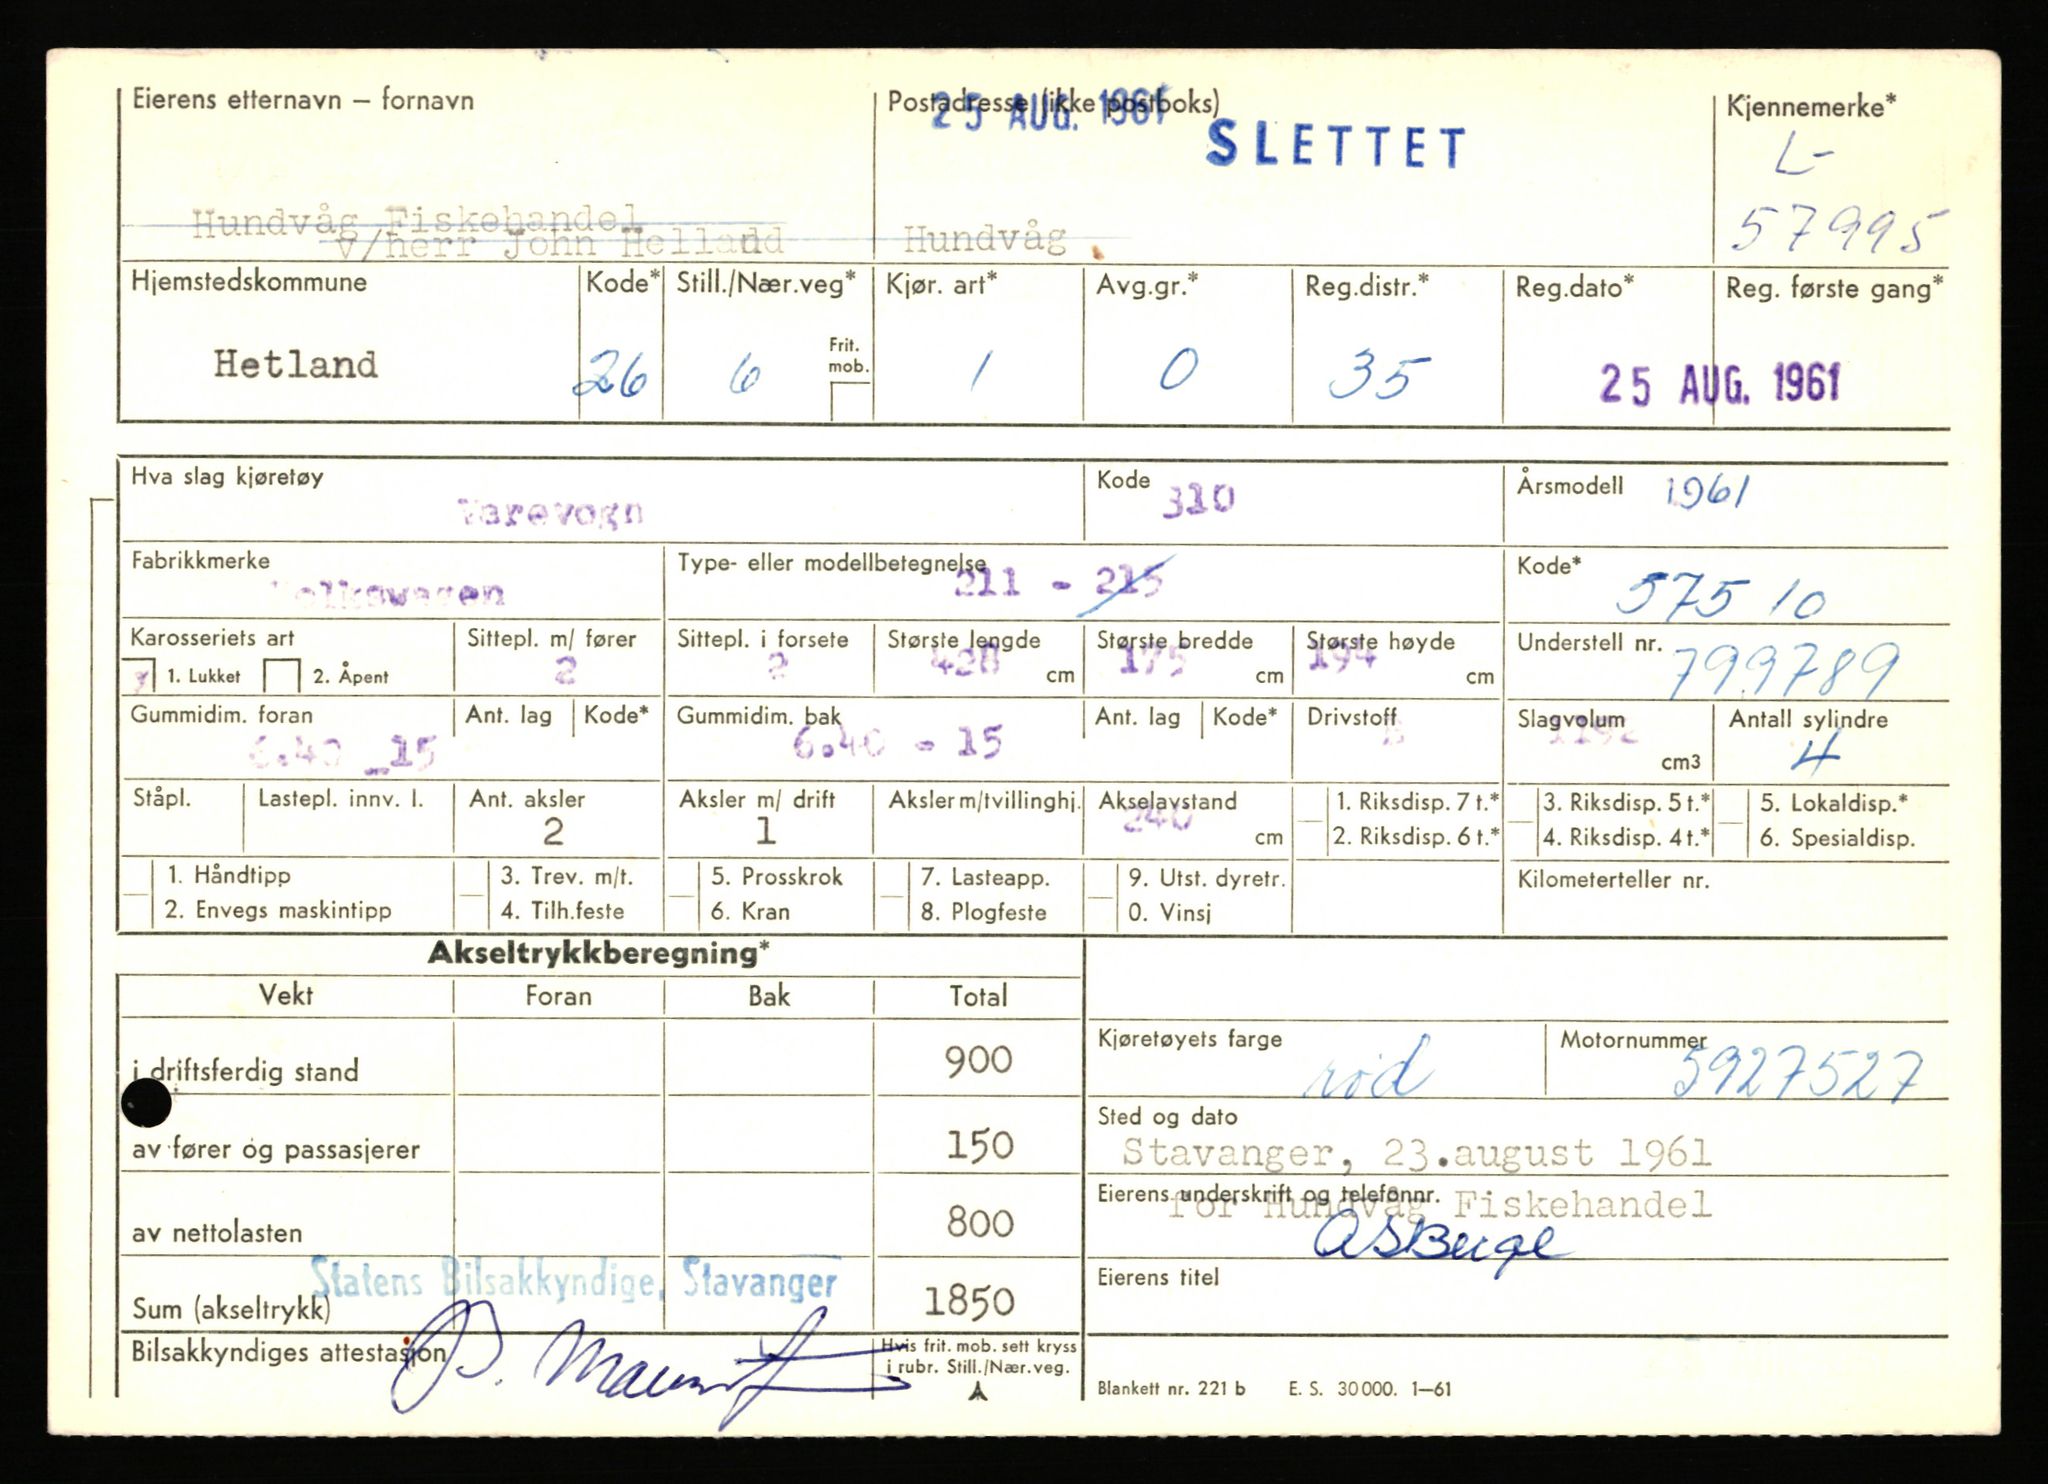 Eierens etternavn — fornavn
Postadresse (ikke postboks)
Kjennemerke*
25 AUG. 1961
SLETTET
L-
57995
Hundvåg Fiskehandel
v/herr John Helland
Hundvåg
Hjemstedskommune
Kode*
Still./Nær.veg*
Kjør. art*
Avg.gr.*
Reg.distr.*
Reg.dato*
Reg. første gang*
Hetland
26
6
Frit. mob.
1
0
35
25 AUG. 1961
Hva slag kjøretøy
Varevogn
Kode
310
Årsmodell
1961
Fabrikkmerke
Volkswagen
Type- eller modellbetegnelse
211 - 215
Kode*
57510
Karosseriets art
x 1. Lukket
2. Åpent
Sittepl. m/ fører
2
Sittepl. i forsete
2
Største lengde
428 cm
Største bredde
175 cm
Største høyde
194 cm
Understell nr.
799789
Gummidim. foran
6.40 _15
Ant. lag
Kode*
Gummidim. bak
6.40 - 15
Ant. lag
Kode*
Drivstoff
B
Slagvolum
1192 cm3
Antall sylindre
4
Ståpl.
Lastepl. innv. l.
Ant. aksler
2
Aksler m/ drift
1
Aksler m/tvillinghj.
Akselavstand
240 cm
1. Riksdisp. 7 t.*
2. Riksdisp. 6 t.*
3. Riksdisp. 5 t.*
4. Riksdisp. 4 t.*
5. Lokaldisp.*
6. Spesialdisp.
1. Håndtipp
2. Envegs maskintipp
3. Trev. m/t.
4. Tilh.feste
5. Prosskrok
6. Kran
7. Lasteapp.
8. Plogfeste
9. Utst. dyretr.
0. Vinsj
Kilometerteller nr.
Akseltrykkberegning*
Vekt
Foran
Bak
Total
i driftsferdig stand
900
av fører og passasjerer
150
av nettolasten
800
Statens Bilsakkyndige, Stavanger
Sum (akseltrykk)
1850
Bilsakkyndiges attestasjon
Hvis frit. mob. sett kryss
i rubr. Still./Nær.veg.
Kjøretøyets farge
rød
Motornummer
5927527
Sted og dato
Stavanger, 23.august 1961
Eierens underskrift og telefonnr.
for Hundvåg Fiskehandel
Eierens titel
Blankett nr. 221 b E. S. 30000. 1—61